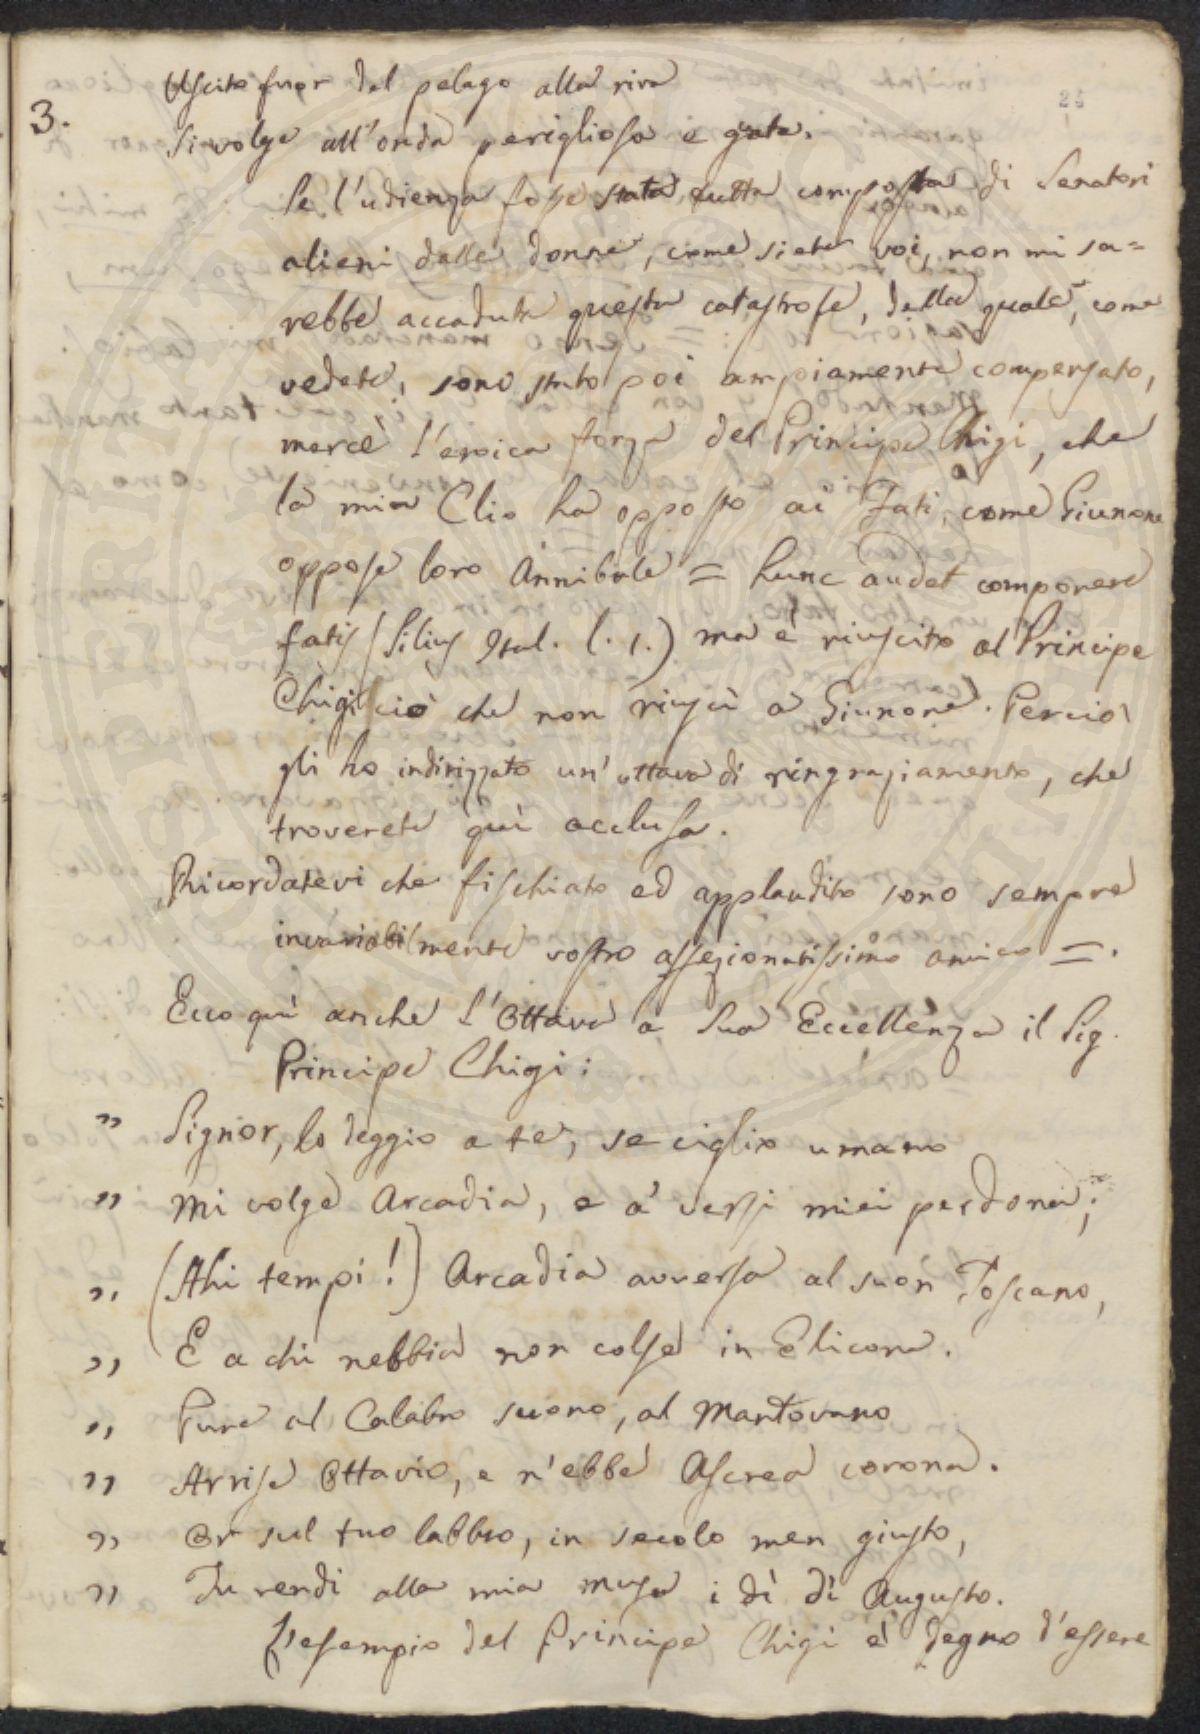 25
3.
Uscito fuor del pelago alla riva
Si volge all'onda perigliosa e guata.
Se l'udienza fosse stata tutta composta di Senatori
alieni dalle donne, come siete voi, non mi sa=
rebbe accaduta questa catastrofe, della quale, come
vedete, sono stato poi ampiamente compensato,
mercè l'eroica forza del Principe Chigi, che
la mia Clio ha opposto ai Fati, come Giunone
oppose loro Annibale = hunc audet componere
fatis (Silius Ital. l. 1.) ma è riuscito al Principe
Chigi ciò che non riuscì a Giunone. Perciò
gli ho indirizzato un'ottava di ringraziamento, che
troverete quì acclusa.
Ricordatevi che fischiato ed applaudito sono sempre
invariabilmente vostro affezionatissimo amico =.
Ecco quì anche l'Ottava a Sua Eccellenza il Sig.
Principe Chigi:
" Signor, lo deggio a te, se ciglio umano
" Mi volge Arcadia, e a' versi miei perdona;
" (Ahi tempi!) Arcadia avversa al suon Toscano,
" E a chi nebbia non colse in Elicona.
" Pure al Calabro suono, al Mantovano
" Arrise Ottavio, e n'ebbe Ascrea corona.
" Or sul tuo labbro, in secolo men giusto,
" Tu rendi alla mia musa i dì di Augusto.
L'esempio del Principe Chigi è degno d'essere